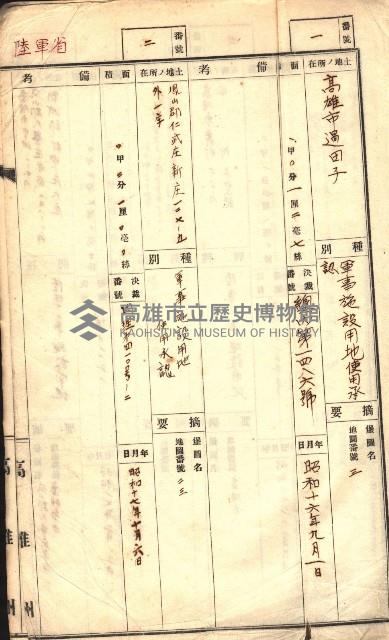 番號
一
土地ノ所在
高雄市過田子
面積
、甲〇分一厘二毛七絲
備考
種別
軍事施設用地使用承認
決裁番號
總 第一四八六號
摘要
堡圖名
地圖番號 三
年月日
昭和十六年九月一日
番號
二
土地ノ所在
鳳山郡仁武庄新庄一〇七ノ九
外一筆
面積
〇甲〇分一厘〇毫〇絲
備考
種別
軍事施設用地
使用承認
決裁番號
摘要
堡圖名
地圖番號 二三
年月日
昭和十七年十月六日
陸軍省
高雄州
高雄市立歷史博物館
KAOHSIUNG MUSEUM OF HISTORY